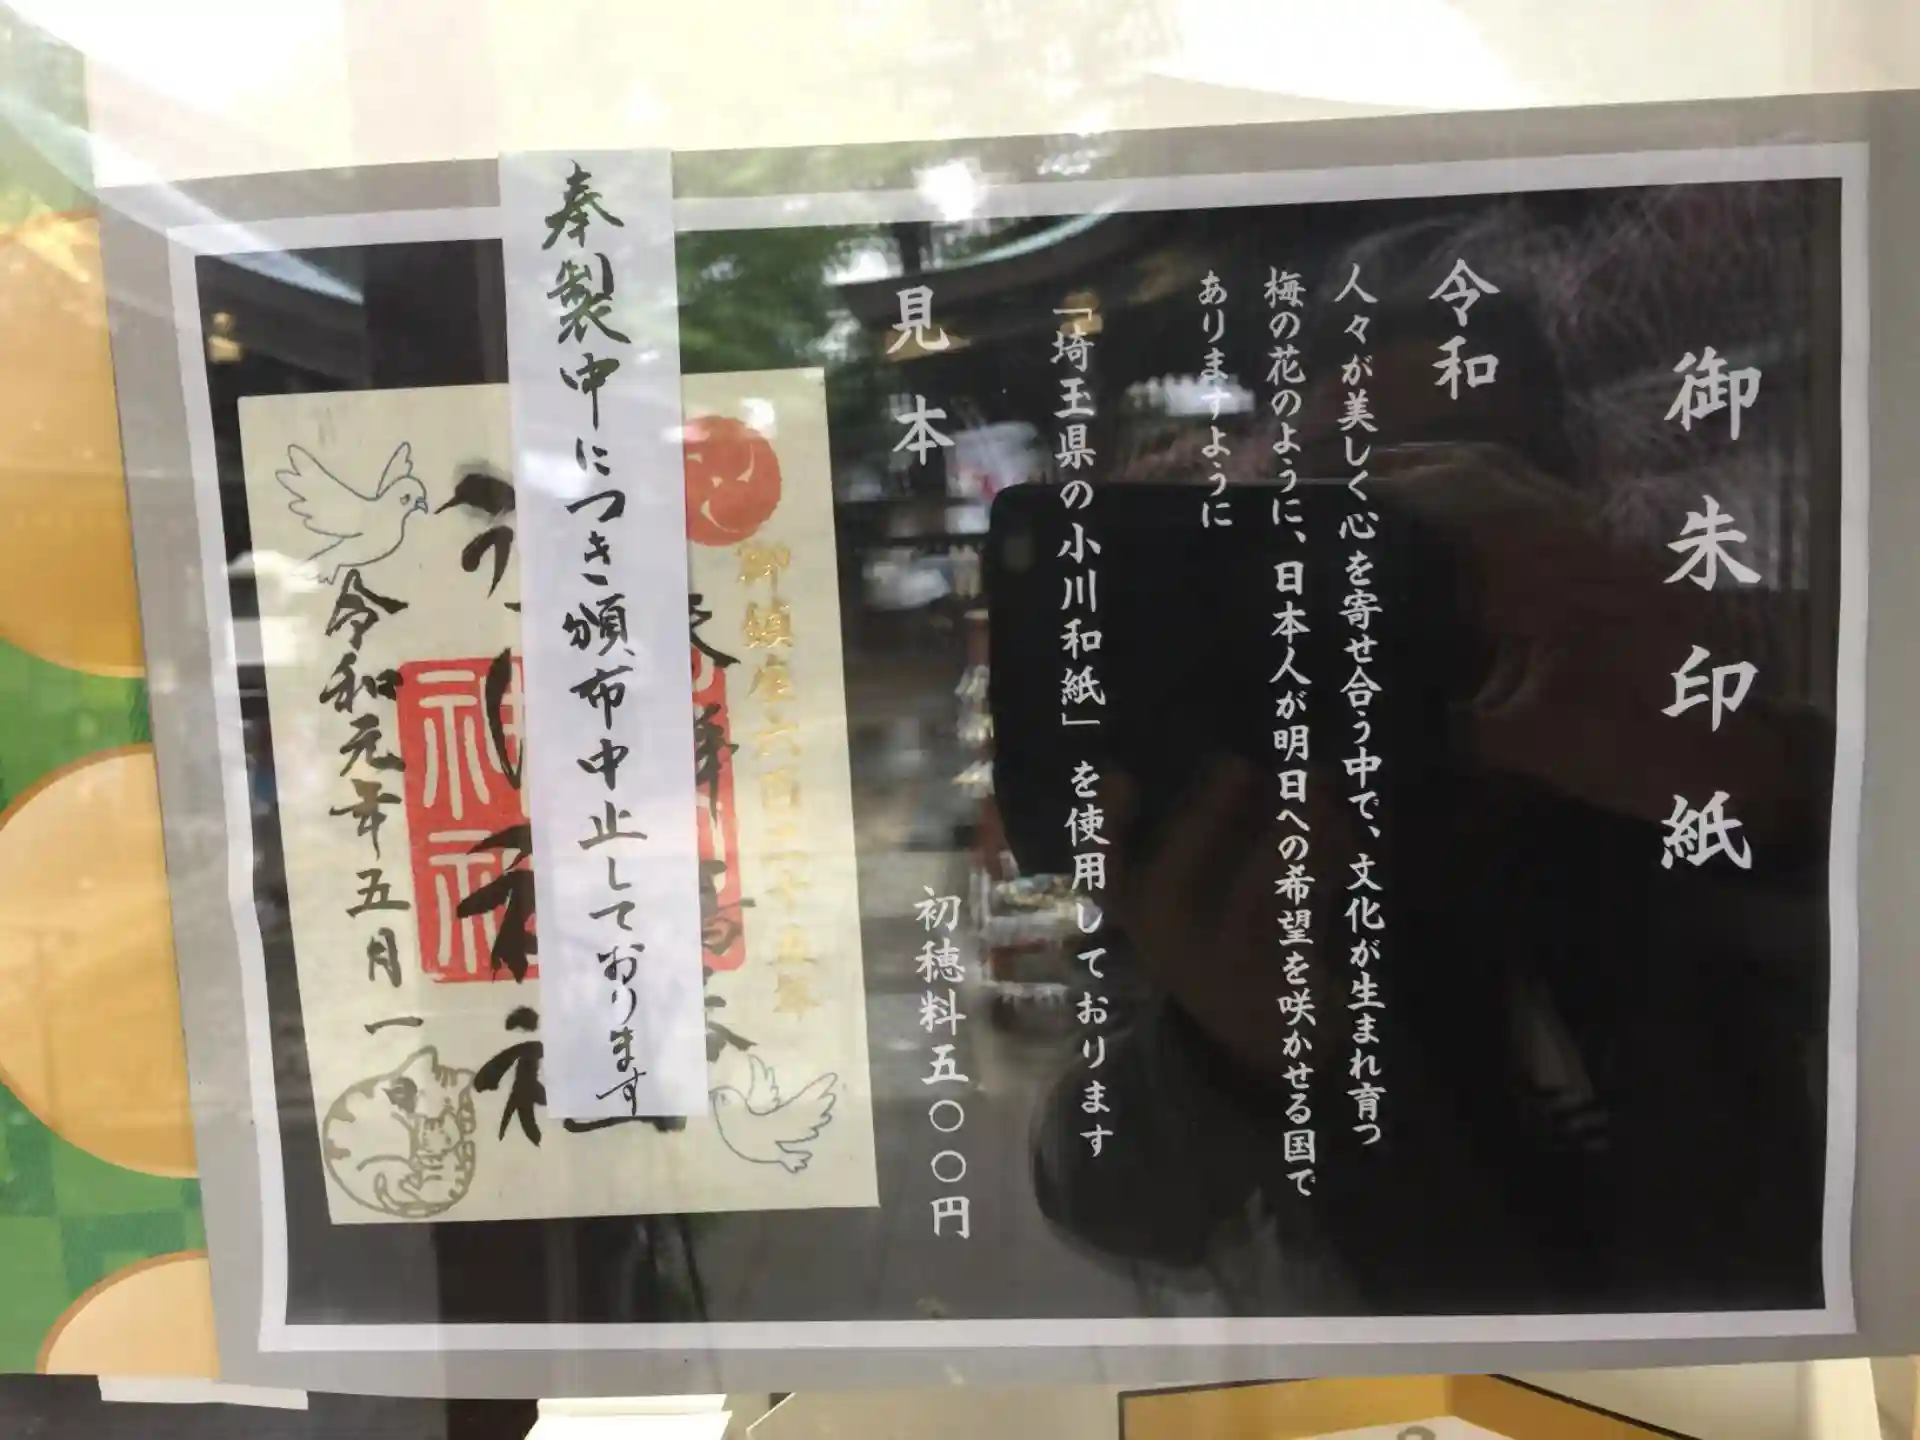 御朱印紙
令和
人々が美しく心を寄せ合う中で、文化が生まれ育つ
梅の花のように、日本人が明日への希望を咲かせる国で
ありますように
「埼玉県の小川和紙」を使用しております
見本
初穂料五〇〇円
奉製中につき頒布中止しております
御鎮座六百二十五年
令和元年五月一